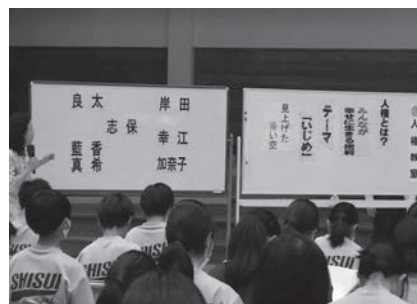 良太 岸田
志保 幸江
藍香
真希 加奈子
人権教室
人権とは?
みんなが
幸せに生きる権利
テーマ
「いじめ」
見上げた
青い空
SHISUI
SHISUI
SHISUI